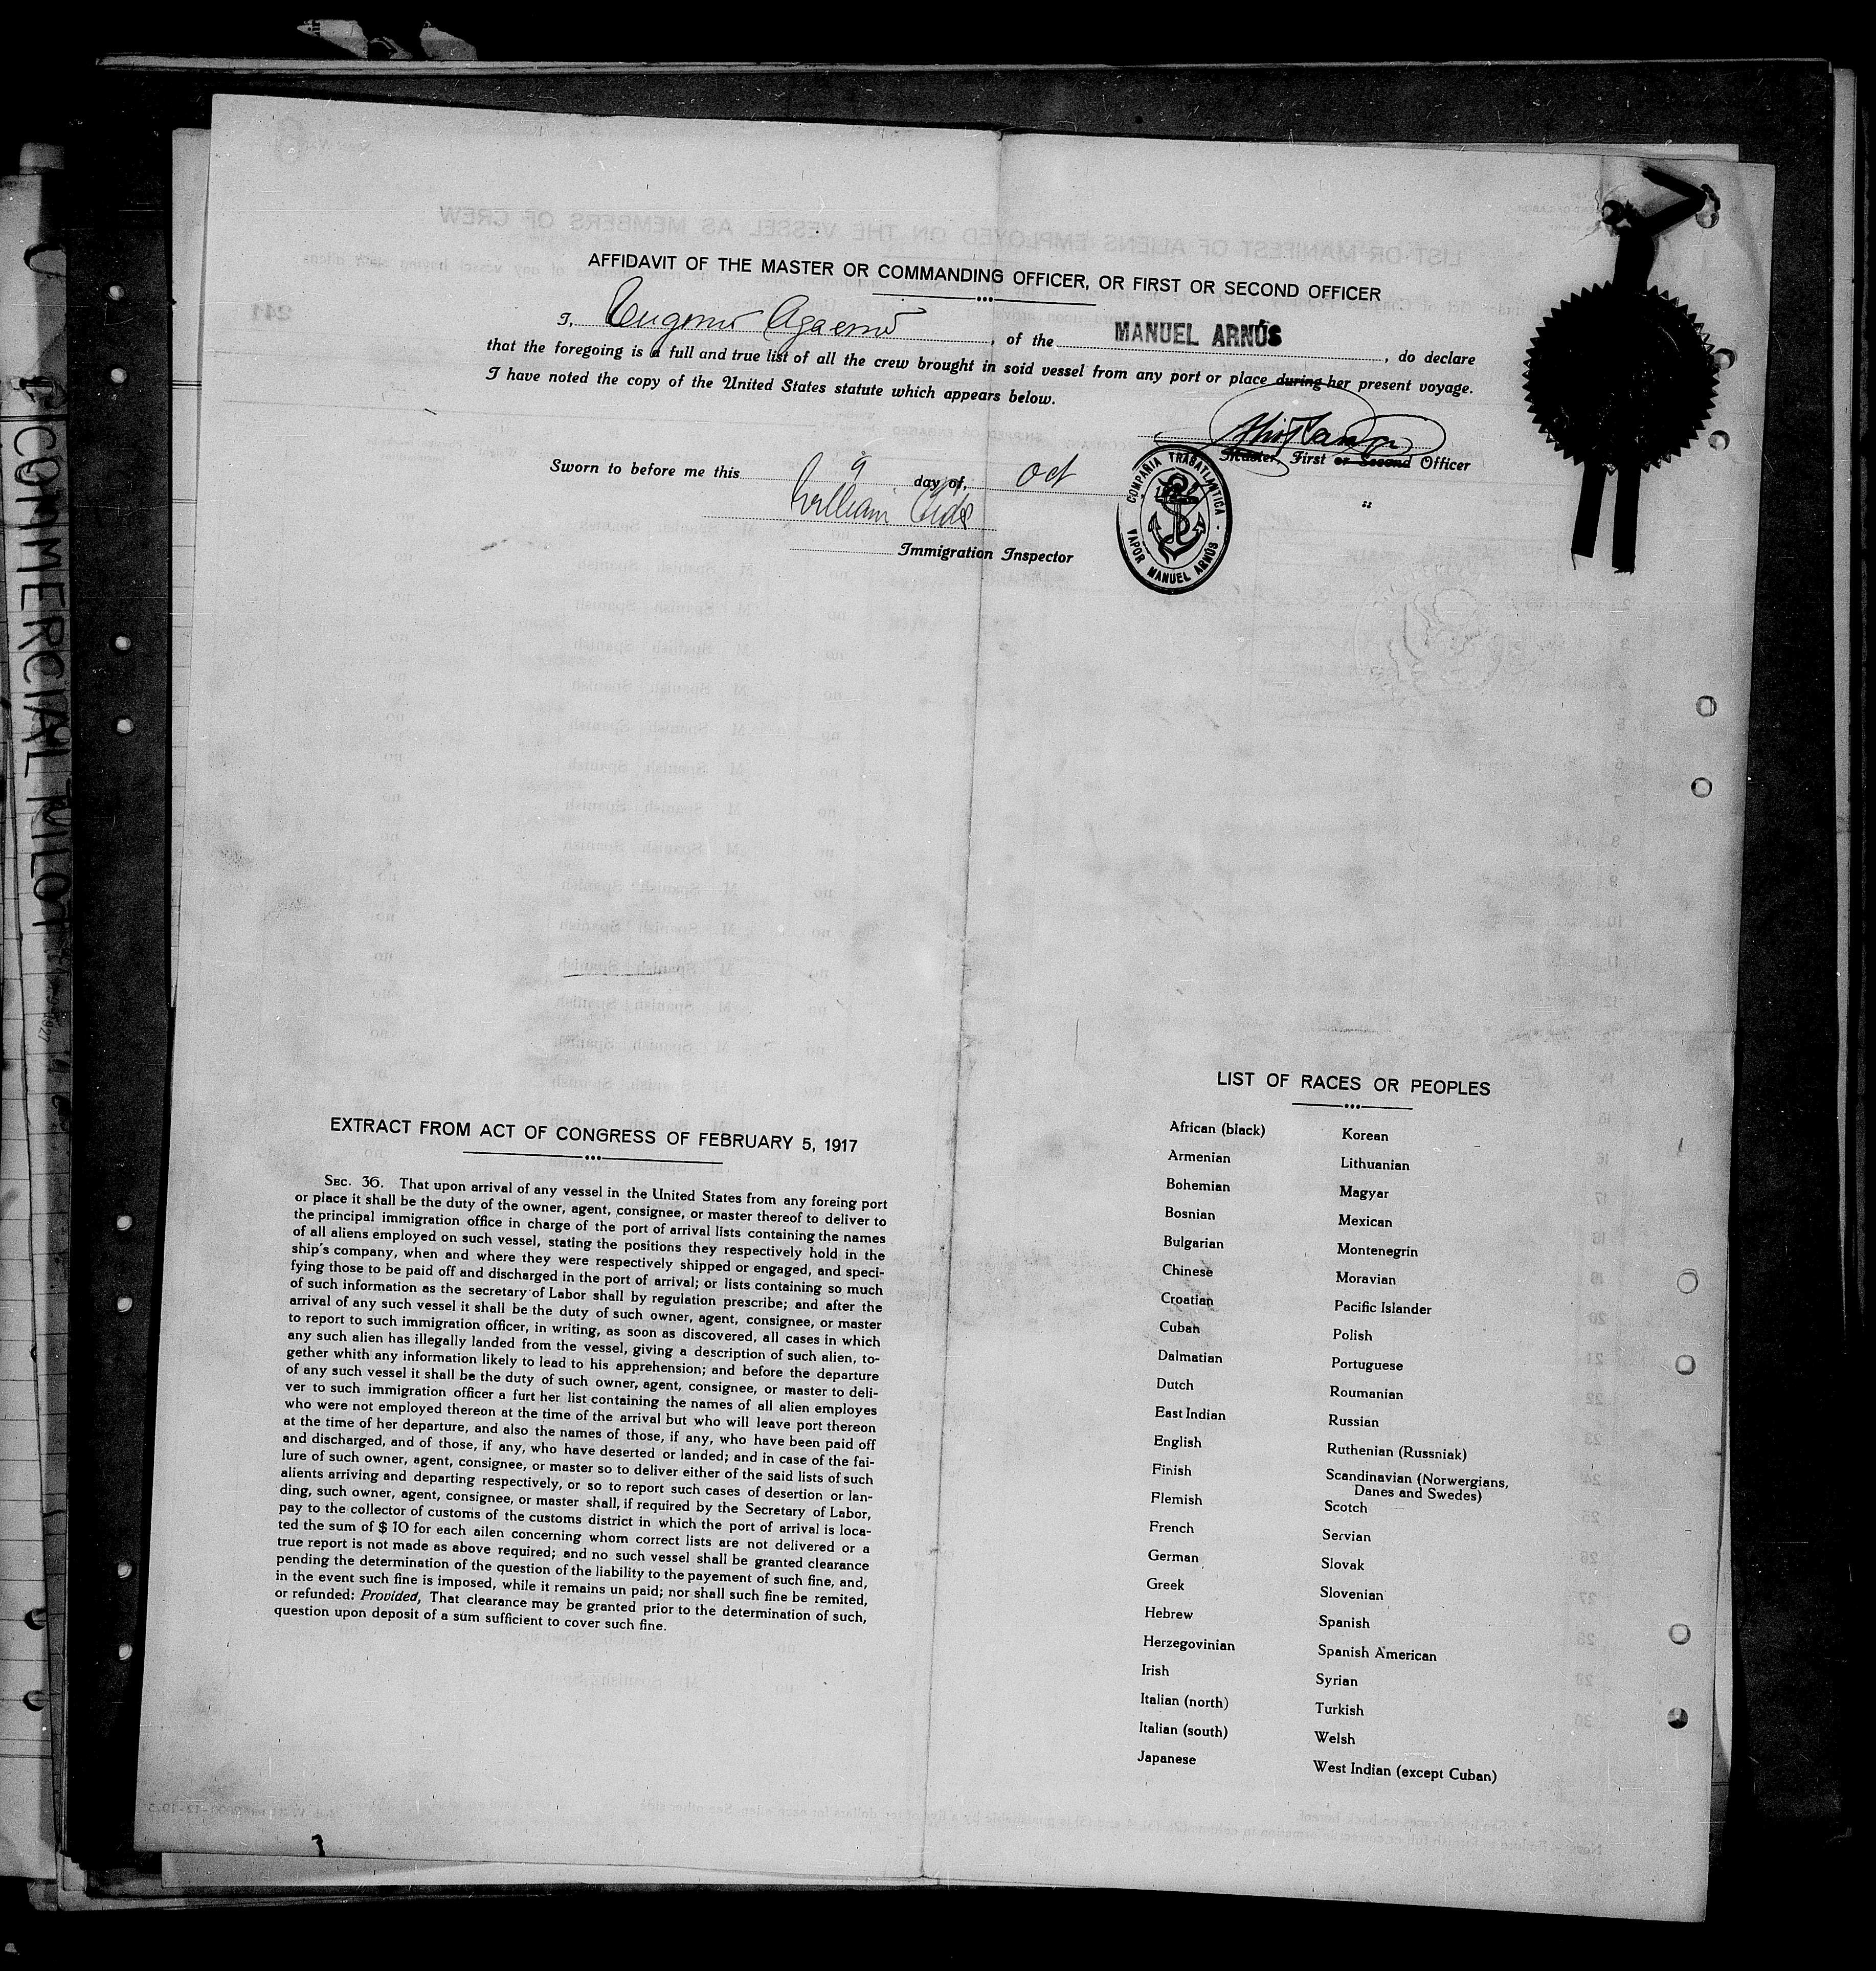 AFFIDAVIT OF THE MASTER OR COMMANDING OFFICER, OR FIRST OR SECOND OFFICER
I, Eugenio Agacino, of the MANUEL ARNÚS, do declare
that the foregoing is a full and true list of all the crew brought in soid vessel from any port or place during her present voyage.
I have noted the copy of the United States statute which appears below.
Master, First or Second Officer
Sworn to before me this 9 day of, Oct
William
Immigration Inspector
COMPAÑIA TRASATLANTICA
VAPOR MANUEL ARNÚS
COMMERCIAL PILOT
EXTRACT FROM ACT OF CONGRESS OF FEBRUARY 5, 1917
SEC. 36. That upon arrival of any vessel in the United States from any foreing port
or place it shall be the duty of the owner, agent, consignee, or master thereof to deliver to
the principal immigration office in charge of the port of arrival lists containing the names
of all aliens employed on such vessel, stating the positions they respectively hold in the
ship's company, when and where they were respectively shipped or engaged, and speci-
fying those to be paid off and discharged in the port of arrival; or lists containing so much
of such information as the secretary of Labor shall by regulation prescribe; and after the
arrival of any such vessel it shall be the duty of such owner, agent, consignee, or master
to report to such immigration officer, in writing, as soon as discovered, all cases in which
any such alien has illegally landed from the vessel, giving a description of such alien, to-
gether whith any information likely to lead to his apprehension; and before the departure
of any such vessel it shall be the duty of such owner, agent, consignee, or master to deli-
ver to such immigration officer a furt her list containing the names of all alien employes
who were not employed thereon at the time of the arrival but who will leave port thereon
at the time of her departure, and also the names of those, if any, who have been paid off
and discharged, and of those, if any, who have deserted or landed; and in case of the fai-
lure of such owner, agent, consignee, or master so to deliver either of the said lists of such
alients arriving and departing respectively, or so to report such cases of desertion or lan-
ding, such owner, agent, consignee, or master shall, if required by the Secretary of Labor,
pay to the collector of customs of the customs district in which the port of arrival is loca-
ted the sum of $ 10 for each ailen concerning whom correct lists are not delivered or a
true report is not made as above required; and no such vessel shall be granted clearance
pending the determination of the question of the liability to the payement of such fine, and,
in the event such fine is imposed, while it remains un paid; nor shall such fine be remited,
or refunded: Provided, That clearance may be granted prior to the determination of such,
question upon deposit of a sum sufficient to cover such fine.
LIST OF RACES OR PEOPLES
African (black)
Armenian
Bohemian
Bosnian
Bulgarian
Chinese
Croatian
Cuban
Dalmatian
Dutch
East Indian
English
Finish
Flemish
French
German
Greek
Hebrew
Herzegovinian
Irish
Italian (north)
Italian (south)
Japanese
Korean
Lithuanian
Magyar
Mexican
Montenegrin
Moravian
Pacific Islander
Polish
Portuguese
Roumanian
Russian
Ruthenian (Russniak)
Scandinavian (Norwergians,
Danes and Swedes)
Scotch
Servian
Slovak
Slovenian
Spanish
Spanish American
Syrian
Turkish
Welsh
West Indian (except Cuban)